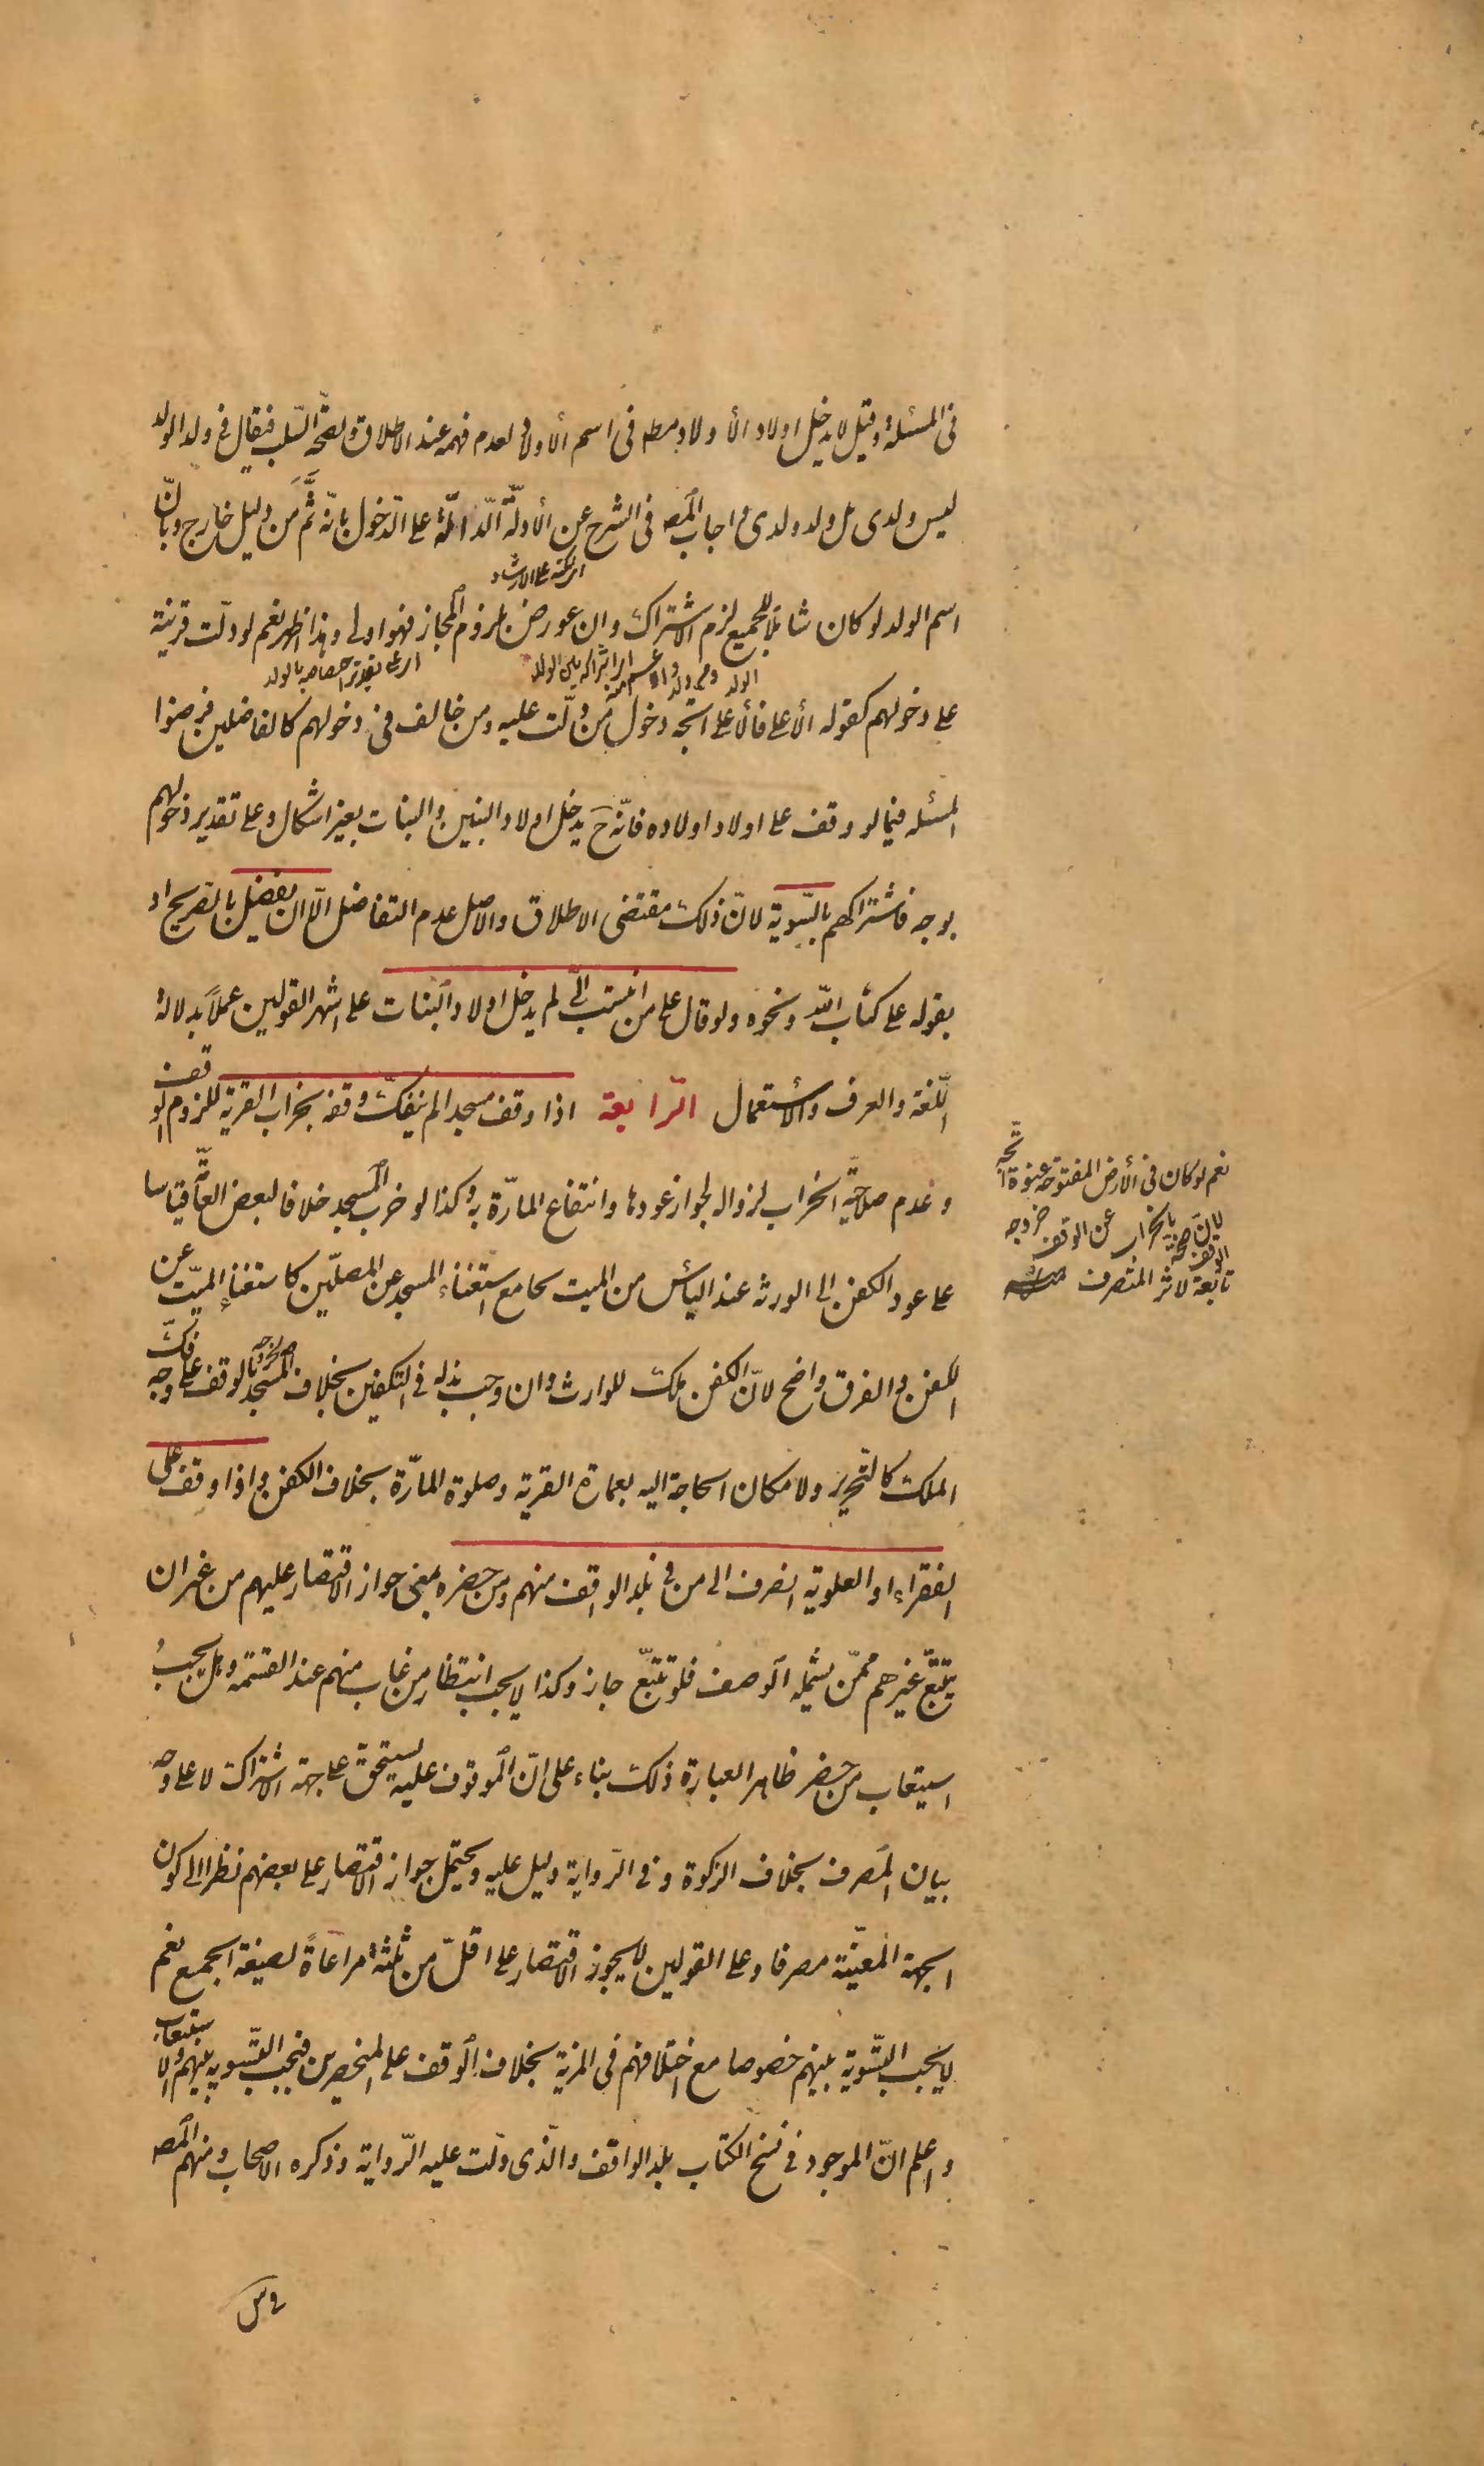 فى المسئلة وقيل لا يدخل اولاد الأولاد مطه فى اسم الأولاد لعدم فهمه عند الاطلاق ولصحّة السّلب فيقال فى ولد الولد
ليس ولدى بل ولد ولدى و اجاب المصه فى الشرح عن الأدلّة الدّالّة على الدّخول بانّه ثَمَّ من دليل خارج وبانّ
اسم الولد لو كان شاملا للجميع لزم الاشتراك وان عورض بلزوم المجاز فهو اولى وهذا اظهر نعم لو دلّت قرينة
على دخولهم كقوله الأعلى فالأعلى اتجه دخول من دلّت عليه ومن خالف فى دخولهم كالفاضلين فرضوا
المسئله فيما لو وقف على اولاد اولاده فانّه ح يدخل اولاد البنين والبنات بغير اشكال وعلى تقدير دخولهم
بوجه فاشتراكهم بالسّوية لانّ ذلك مقتضى الاطلاق والاصل عدم التفاضل الّا ان يفضل بالتصريح او
بقوله على كتاب اللّه ونحوه ولو قال على من انتسب الىّ لم يدخل اولاد البنات على اشهر القولين عملاً بدلالة
اللّغة والعرف والأستعمال الرّابعة اذا وقف مسجدا لم ينفكّ وقفه بخراب القرية للزوم الوقف
وعدم صلاحيّة الخراب لزواله لجواز عودها وانتفاع المارّة به وكذا لو خرب المسجد خلافا لبعض العامّة قياسا
على عود الكفن الى الورثة عند اليأس من الميت بجامع استغناء المسجد عن المصلّين كاستغناء الميّت عن
الكفن والفرق واضح لانّ الكفن ملك للوارث وان وجب بذله فى التكفين بخلاف المسجد لخروجه بالوقف على وجه فكّ
الملك كالتحرير ولامكان الحاجة اليه بعمارة القرية وصلوة المارّة بخلاف الكفن واذا وقف على
الفقراء او العلوية انصرف الى من فى بلد الواقف منهم ومن حضره بمعنى جواز الاقتصار عليهم من غير ان
يتتبّع غيرهم ممّن يشمله الوصف فلو تتبّع جاز وكذا لا يجب انتظار من غاب منهم عند القسمة وهل يجب
استيعاب من حضر ظاهر العبارة ذلك بناء على انّ الموقوف عليه يستحقّ على جهة الاشتراك لا على وجه
بيان المصرف بخلاف الزكوة وفى الرّواية دليل عليه ويحتمل جواز الاقتصار على بعضهم نظرا الى كون
الجهة المعيّنة مصرفا وعلى القولين لا يجوز الاقتصار على اقلّ من ثلثة مراعاةً لصيغة الجمع نعم
لا يجب التّسوية بينهم خصوصا مع اختلافهم فى المزية بخلاف الوقف على المنحصرين فيجب التّسويه بينهم والاستيعاب
واعلم انّ الموجود فى نسخ الكتاب بلد الواقف والّذى دلّت عليه الرّواية وذكره الاصحاب ومنهم المصه
فى س
نعم لو كان فى الأرض المفتوحة عنوة اتّجه
خروجه عن الوقف بالخراب لانّ صحّة
الوقف تابعة لاثر المتصرف